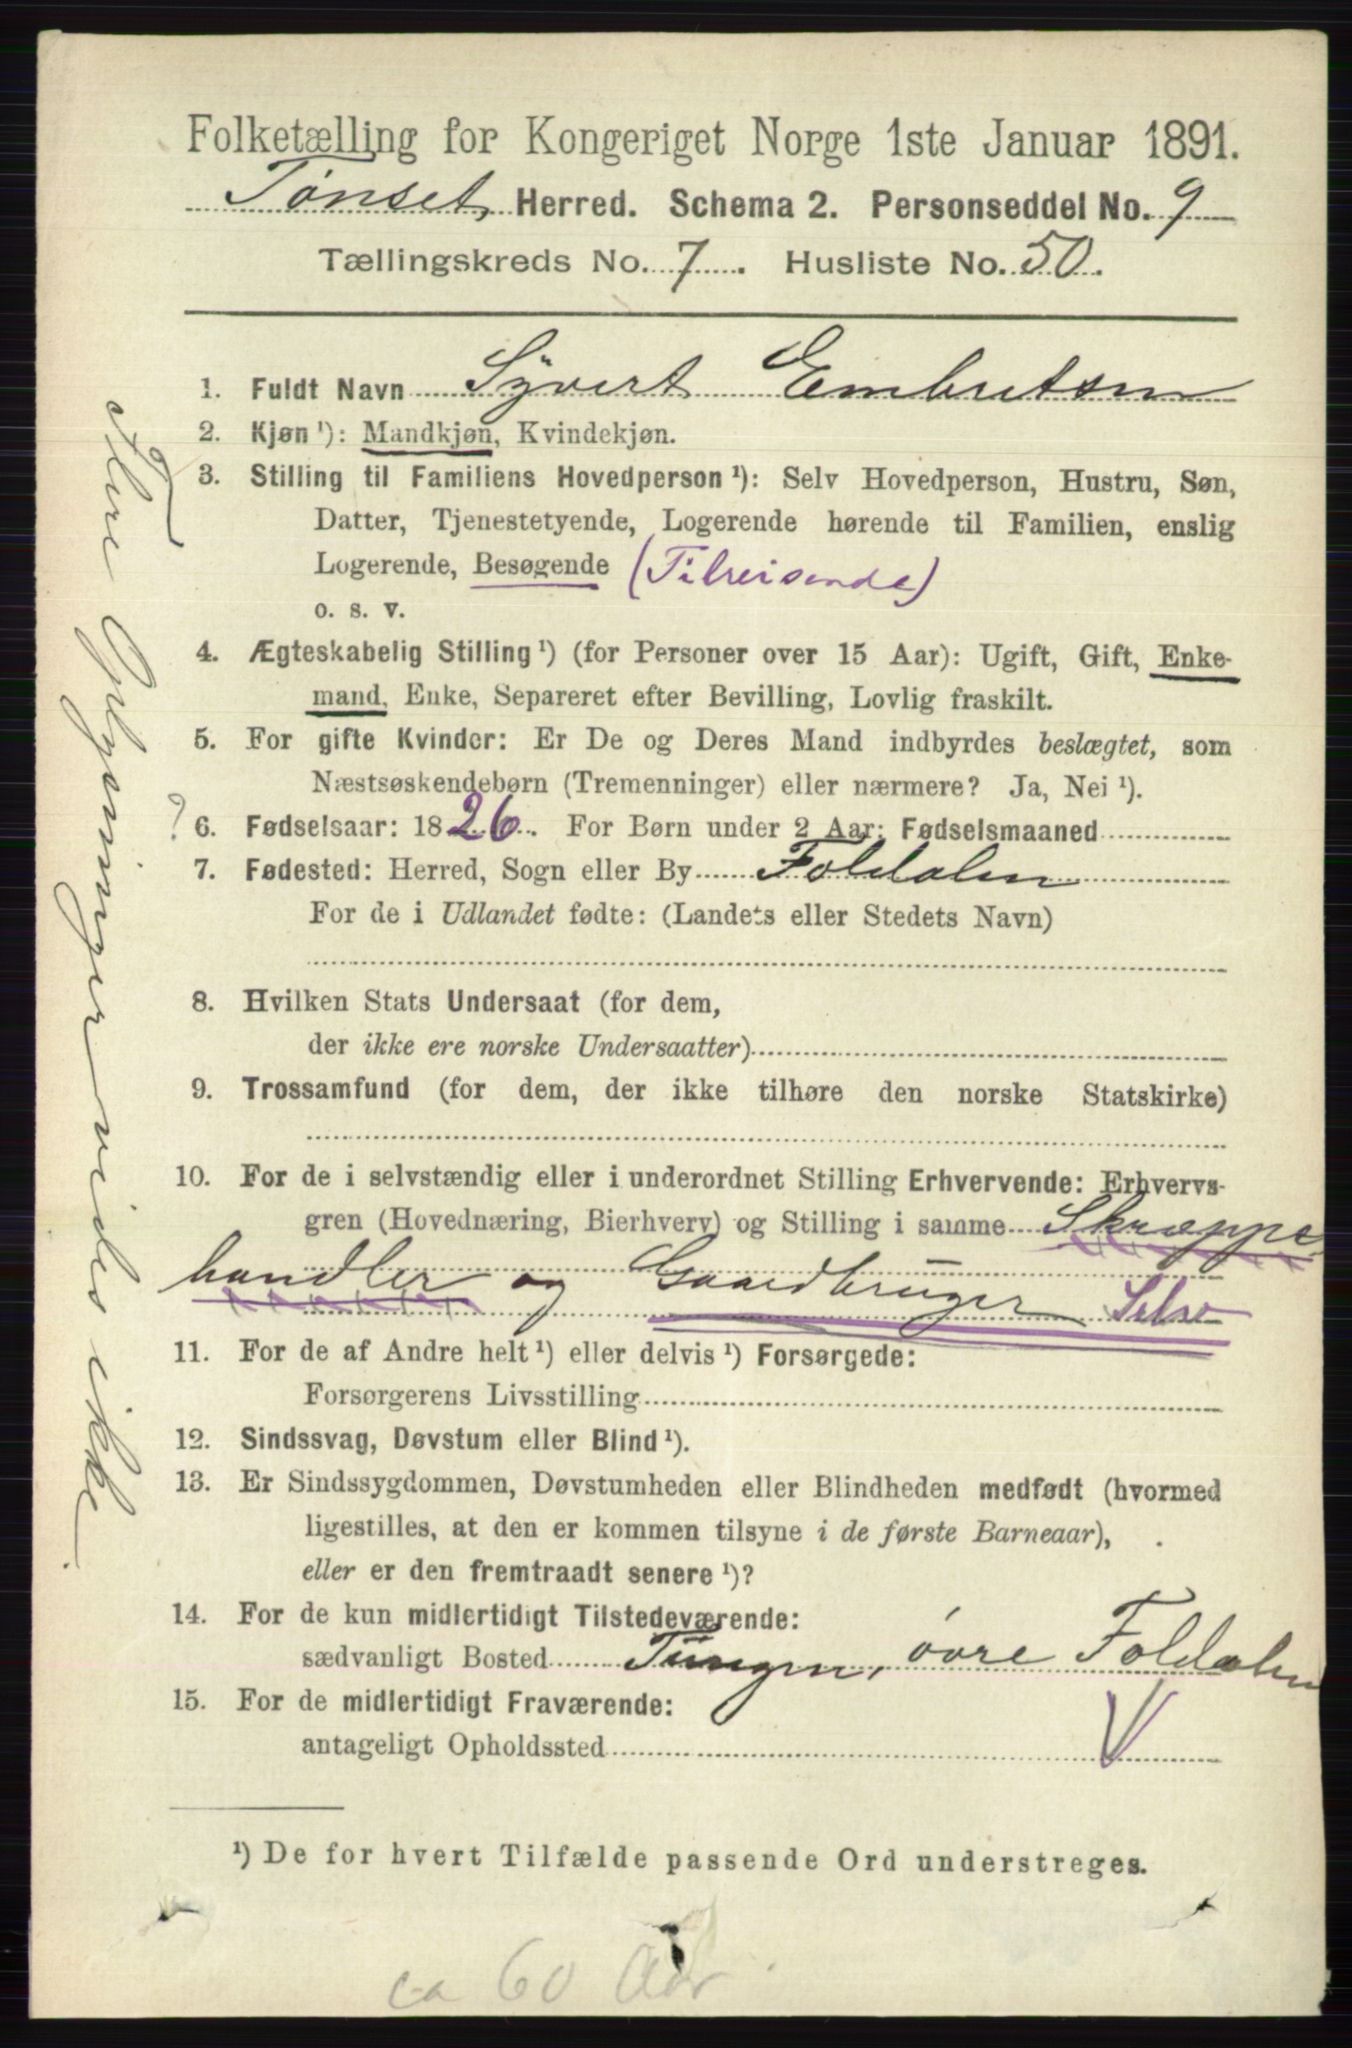 Folketælling for Kongeriget Norge 1ste Januar 1891.
Tønset Herred. Schema 2. Personseddel No. 9
Tællingskreds No. 7. Husliste No. 50.
1. Fuldt Navn Syvert Embretsen
2. Kjøn ¹): Mandkjøn, Kvindekjøn.
3. Stilling til Familiens Hovedperson ¹): Selv Hovedperson, Hustru, Søn,
Datter, Tjenestetyende, Logerende hørende til Familien, enslig
Logerende, Besøgende (Tilreisende)
o. s. v.
4. Ægteskabelig Stilling ¹) (for Personer over 15 Aar): Ugift, Gift, Enke-
mand, Enke, Separeret efter Bevilling, Lovlig fraskilt.
5. For gifte Kvinder: Er De og Deres Mand indbyrdes beslægtet, som
Næstsøskendebørn (Tremenninger) eller nærmere? Ja, Nei ¹).
? 6. Fødselsaar: 1826. For Børn under 2 Aar: Fødselsmaaned
7. Fødested: Herred, Sogn eller By Foldalen
For de i Udlandet fødte: (Landets eller Stedets Navn)
8. Hvilken Stats Undersaat (for dem,
der ikke ere norske Undersaatter)
9. Trossamfund (for dem, der ikke tilhøre den norske Statskirke)
10. For de i selvstændig eller i underordnet Stilling Erhvervende: Erhvervs-
gren (Hovednæring, Bierhverv) og Stilling i samme Skræppe
handler og Gaardbruger Selv
11. For de af Andre helt ¹) eller delvis ¹) Forsørgede:
Forsørgerens Livsstilling
12. Sindssvag, Døvstum eller Blind ¹).
13. Er Sindssygdommen, Døvstumheden eller Blindheden medfødt (hvormed
ligestilles, at den er kommen tilsyne i de første Barneaar),
eller er den fremtraadt senere ¹)?
14. For de kun midlertidigt Tilstedeværende:
sædvanligt Bosted Tungen, övre Foldalen
15. For de midlertidigt Fraværende:
antageligt Opholdssted
V
¹) De for hvert Tilfælde passende Ord understreges.
ca 60 Aar
Flere Oplysninger vides ikke.